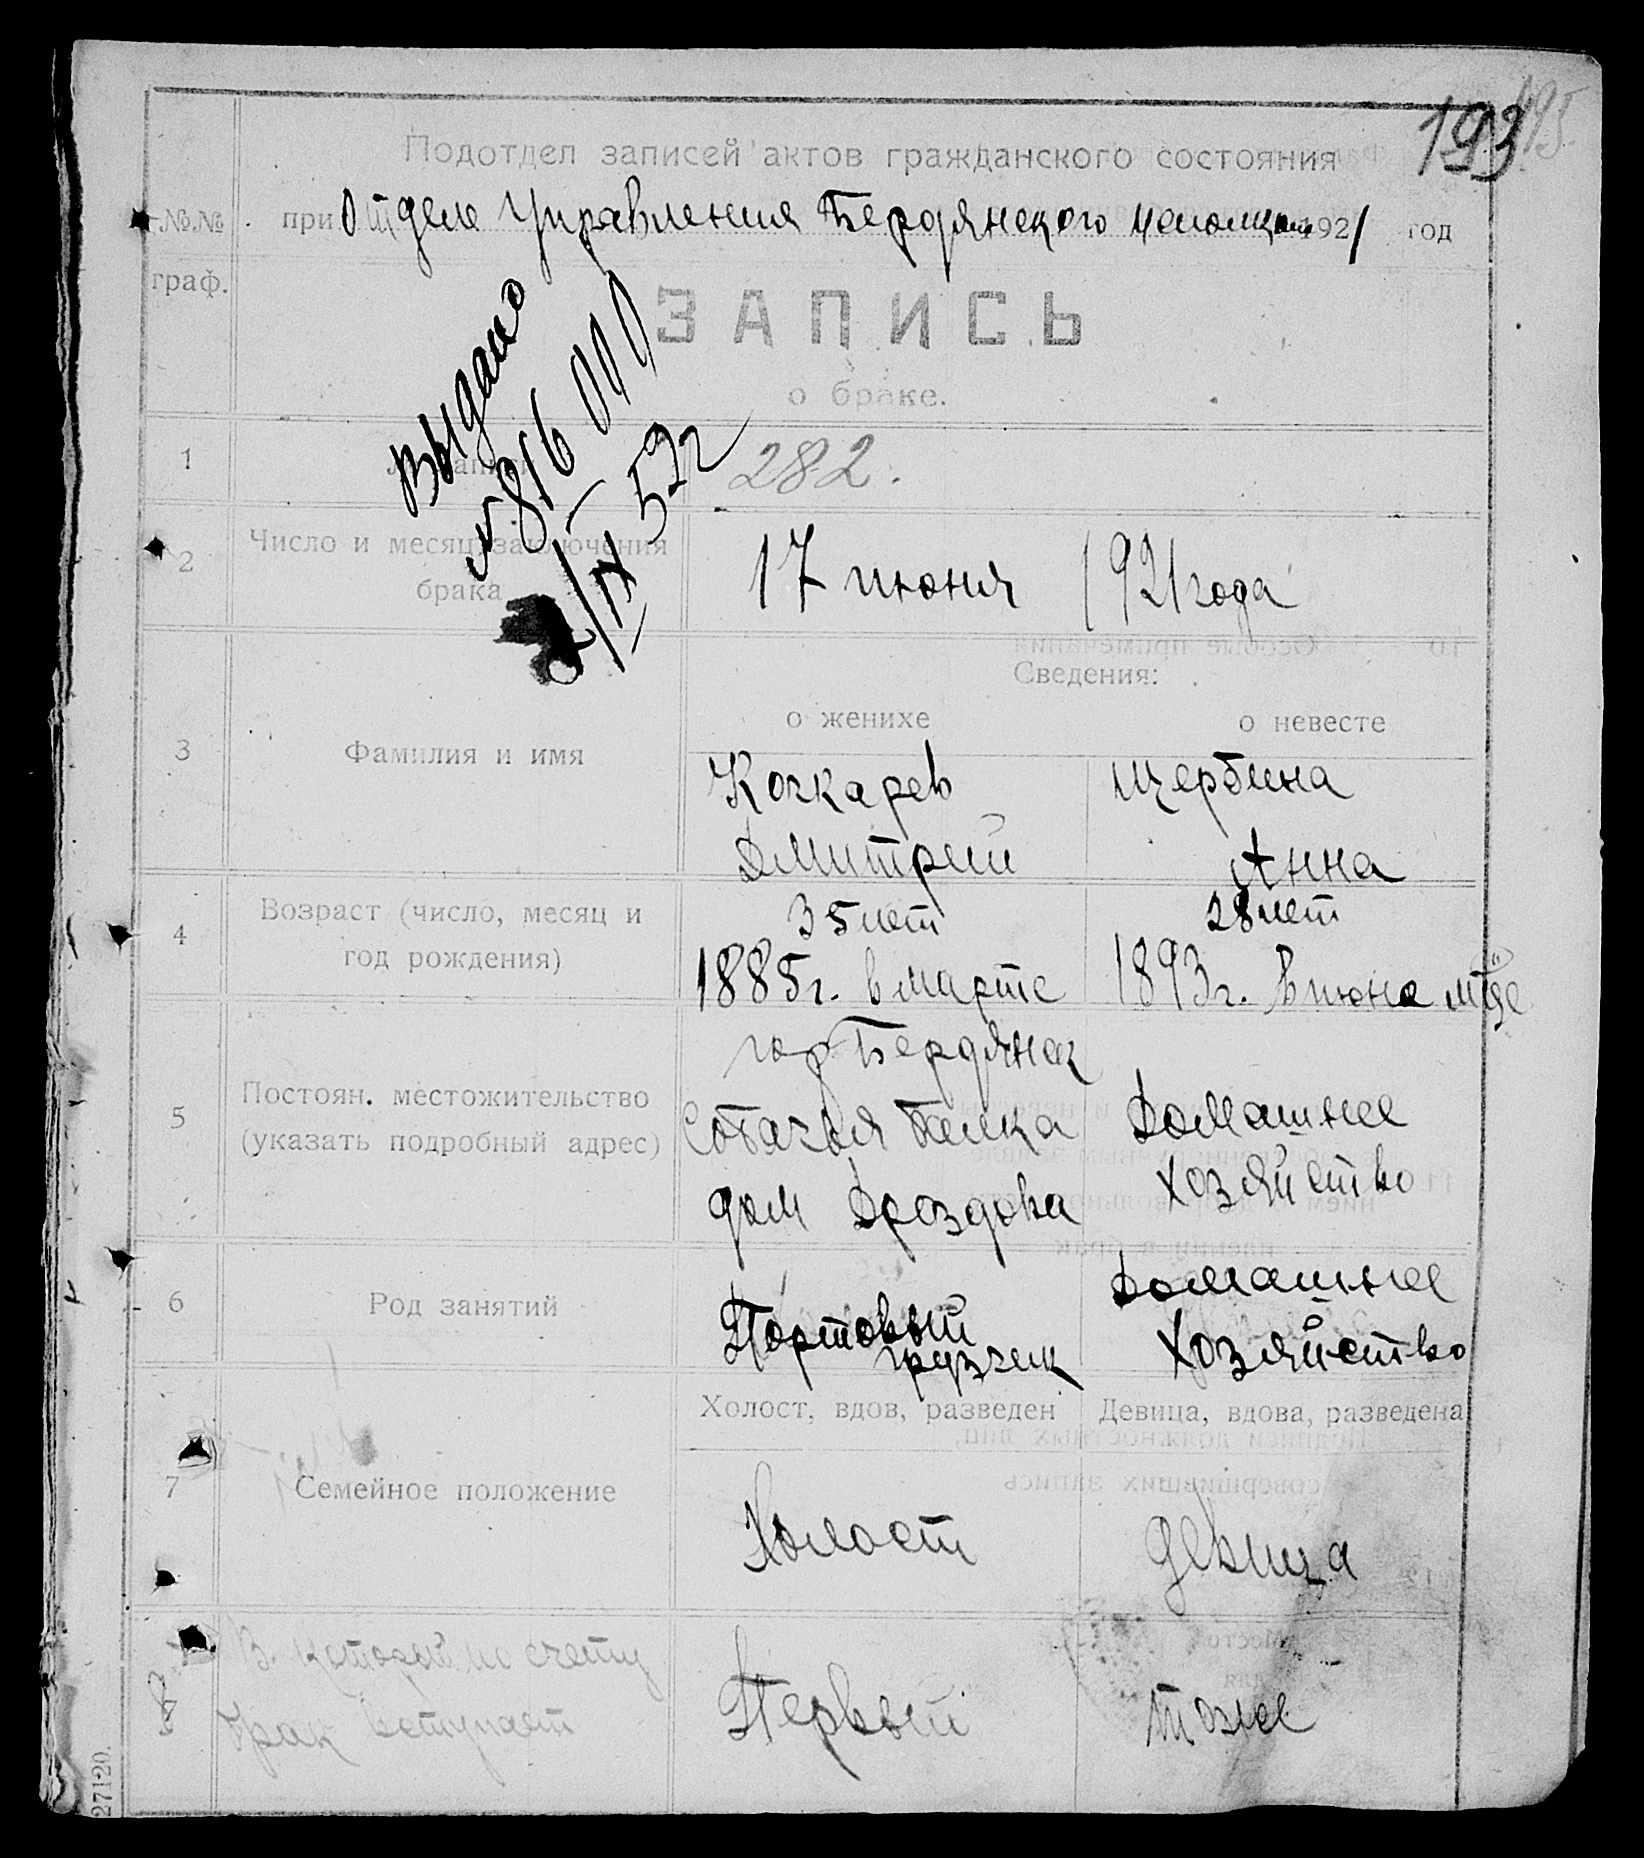 193
195.
Подотдел записей актов гражданского состояния
№№ граф.
при Отделе Управления Бердянского исполкома 1921 год
ЗАПИСЬ
о браке.
Выдано
№ 816
IX 52г
1
282.
2 Число и месяц заключения брака
17 июня 1921 года
Сведения:
о женихе о невесте
3 Фамилия и имя
Кочкарев Щербина
Дмитрий Анна
4 Возраст (число, месяц и год рождения)
35 лет 28 лет
1885г. в марте 1893г. в июне м-це
5 Постоян. местожительство (указать подробный адрес)
гор Бердянск
Собачья балка Домашнее
дом Дроздова хозяйство
6 Род занятий
Портовый Домашнее
грузчик хозяйство
Холост, вдов, разведен Девица, вдова, разведена
7 Семейное положение
Холост девица
8 В который по счету
брак вступает
Первый тоже
27120.